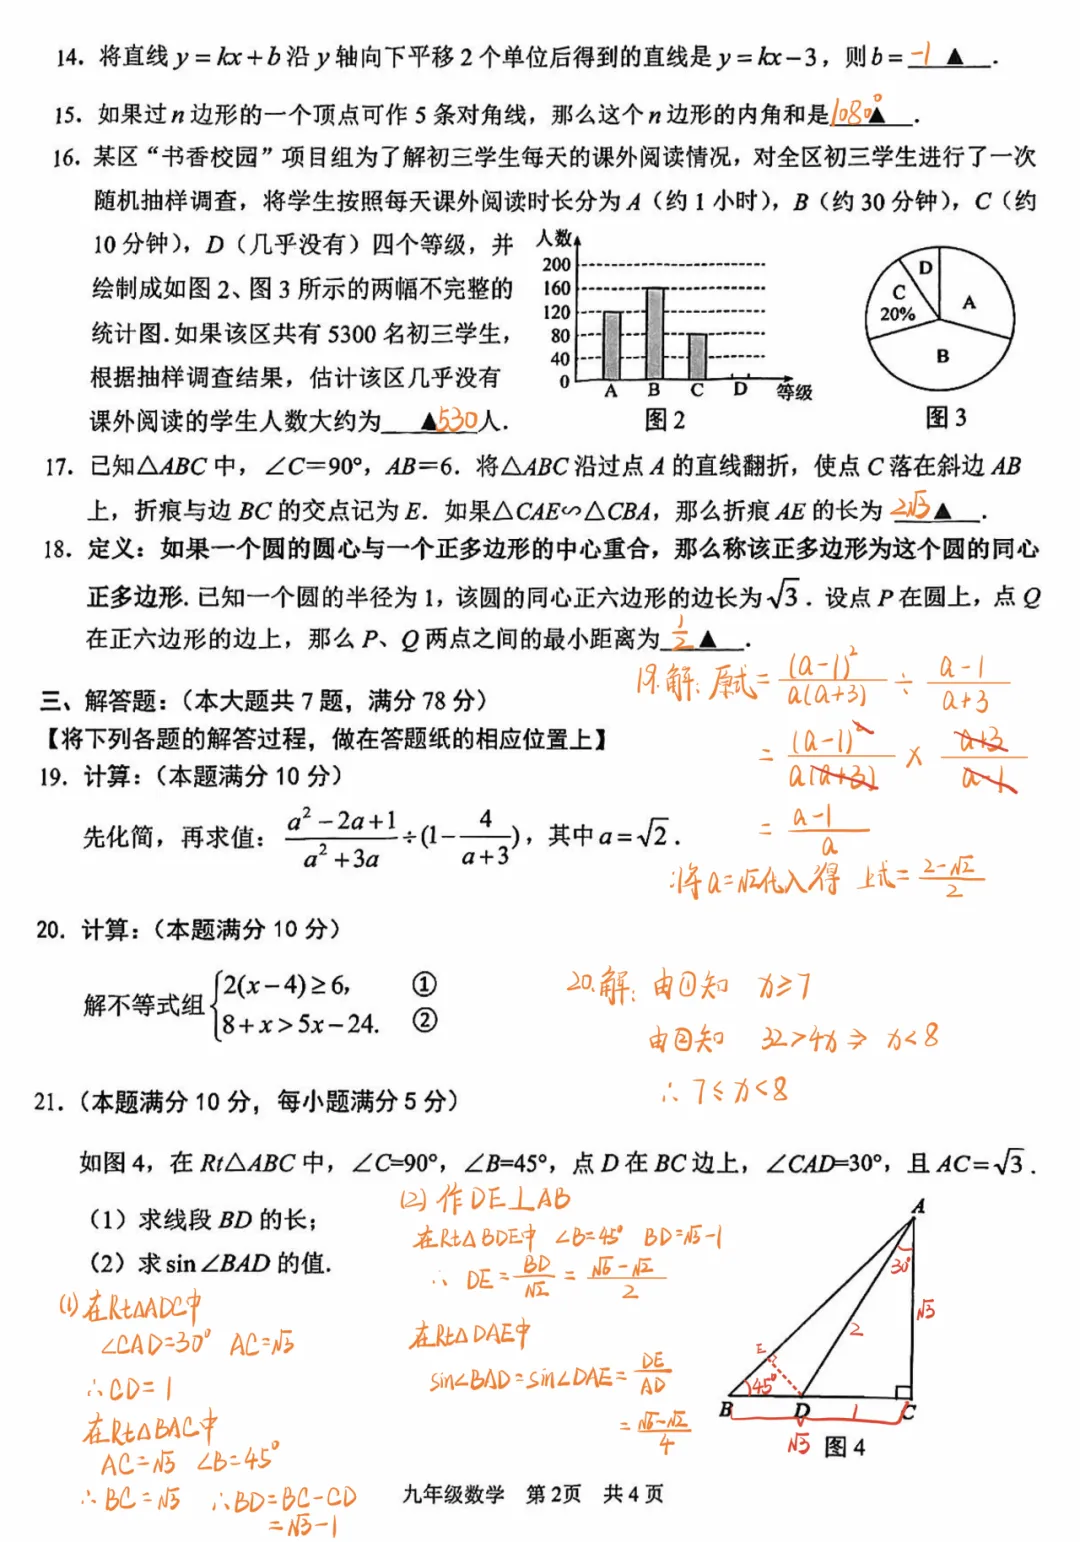 14. 将直线 y = kx + b 沿 y 轴向下平移 2 个单位后得到的直线是 y = kx − 3，则 b = -1 ▲ .
15. 如果过 n 边形的一个顶点可作 5 条对角线，那么这个 n 边形的内角和是 1080° ▲ .
16. 某区“书香校园”项目组为了解初三学生每天的课外阅读情况，对全区初三学生进行了一次
随机抽样调查，将学生按照每天课外阅读时长分为 A（约 1 小时），B（约 30 分钟），C（约
10 分钟），D（几乎没有）四个等级，并
绘制成如图 2、图 3 所示的两幅不完整的
统计图. 如果该区共有 5300 名初三学生，
根据抽样调查结果，估计该区几乎没有
课外阅读的学生人数大约为 ▲ 530 人.
人数
200
160
120
80
40
0
A B C D 等级
图 2
D
C
20%
A
B
图 3
17. 已知△ABC 中，∠C=90°，AB=6. 将△ABC 沿过点 A 的直线翻折，使点 C 落在斜边 AB
上，折痕与边 BC 的交点记为 E. 如果△CAE∽△CBA，那么折痕 AE 的长为 2√3 ▲ .
18. 定义：如果一个圆的圆心与一个正多边形的中心重合，那么称该正多边形为这个圆的同心
正多边形. 已知一个圆的半径为 1，该圆的同心正六边形的边长为 √3 . 设点 P 在圆上，点 Q
在正六边形的边上，那么 P、Q 两点之间的最小距离为 1/2 ▲ .
三、解答题：（本大题共 7 题，满分 78 分）
【将下列各题的解答过程，做在答题纸的相应位置上】
19. 计算：（本题满分 10 分）
先化简，再求值：(a² − 2a + 1)/(a² + 3a) ÷ (1 − 4/(a + 3))，其中 a = √2 .
19.解: 原式 = (a-1)²/a(a+3) ÷ (a-1)/(a+3)
= (a-1)²/a(a+3) × (a+3)/(a-1)
= (a-1)/a
将 a=√2代入得 上式 = (2-√2)/2
20. 计算：（本题满分 10 分）
解不等式组 { 2(x − 4) ≥ 6, ①
8 + x > 5x − 24. ②
20.解: 由①知 x≥7
由②知 32>4x ⇒ x<8
∴ 7≤x<8
21.（本题满分 10 分，每小题满分 5 分）
如图 4，在 Rt△ABC 中，∠C=90°，∠B=45°，点 D 在 BC 边上，∠CAD=30°，且 AC = √3 .
（1）求线段 BD 的长；
（2）求 sin∠BAD 的值.
(1) 在Rt△ADC中
∠CAD=30° AC=√3
∴CD=1
在Rt△BAC中
AC=√3 ∠B=45°
∴BC=√3 ∴BD=BC-CD
=√3-1
(2) 作DE⊥AB
在Rt△BDE中 ∠B=45° BD=√3-1
∴ DE = BD/√2 = (√6-√2)/2
在Rt△DAE中
sin∠BAD = sin∠DAE = DE/AD
= (√6-√2)/4
A
30°
√3
2
E
45°
B D 1 C
√3
图 4
九年级数学 第2页 共 4 页